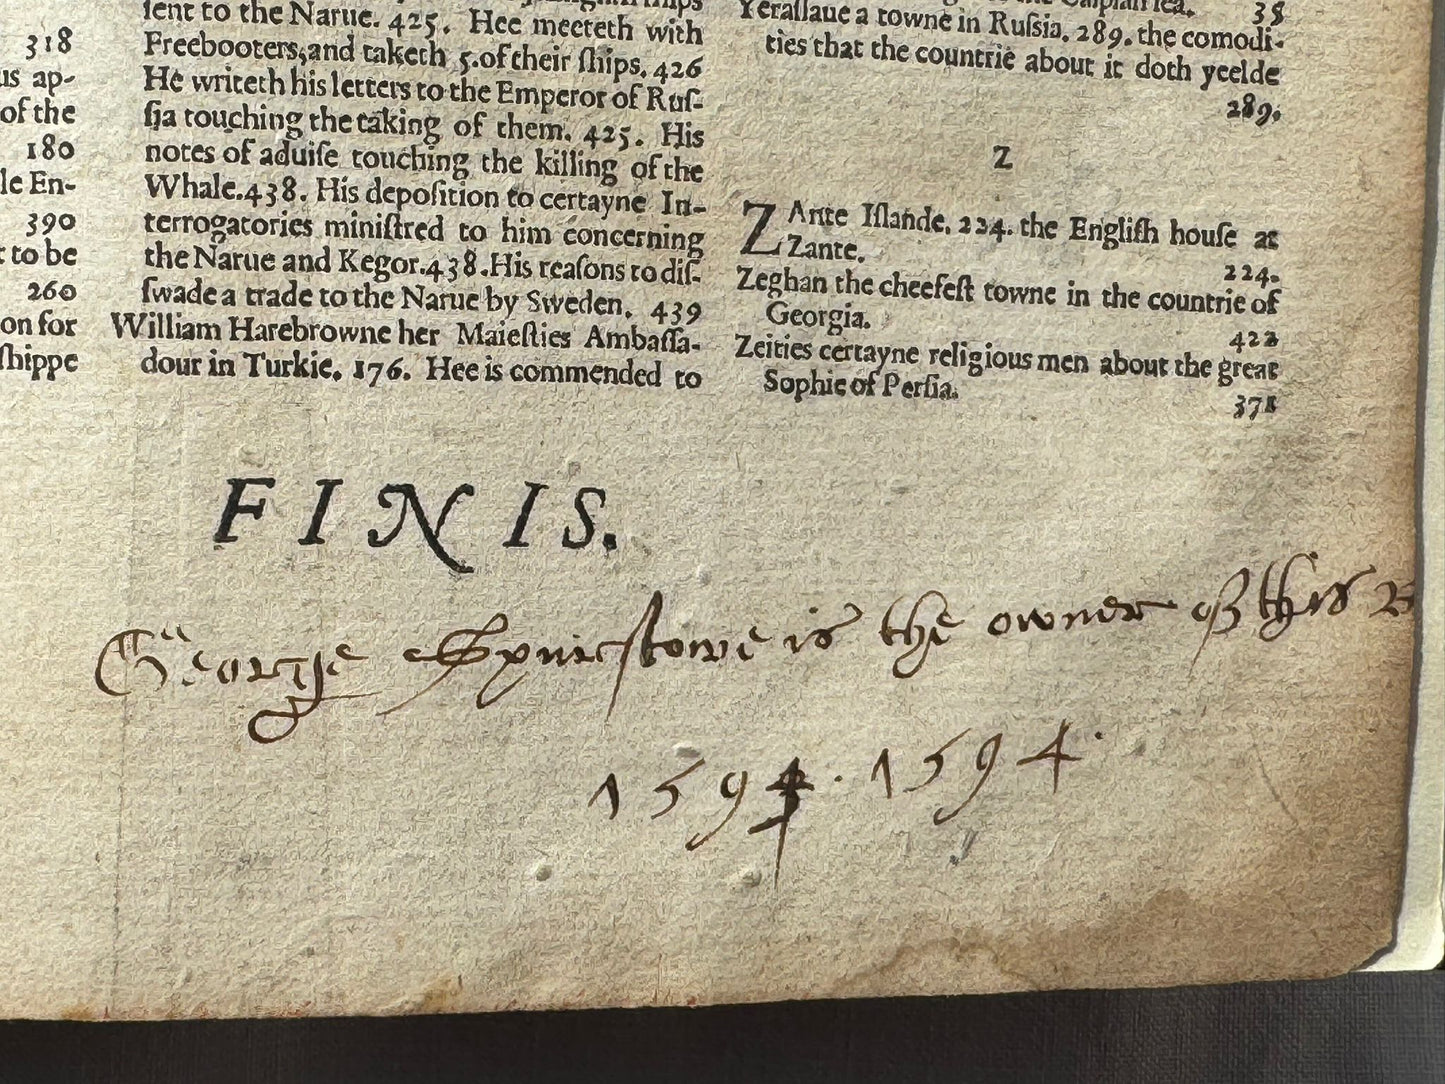 318
us ap-
of the
180
le En-
390
to be
260
on for
ſhippe
ſent to the Narue. 425. Hee meeteth with
Freebooters, and taketh 5. of their ſhips. 426
He writeth his letters to the Emperor of Ruſ-
ſia touching the taking of them. 425. His
notes of aduiſe touching the killing of the
Whale. 438. His depoſition to certayne In-
terrogatories miniſtred to him concerning
the Narue and Kegor. 438. His reaſons to diſ-
ſwade a trade to the Narue by Sweden. 439
William Harebrowne her Maieſties Ambaſſa-
dour in Turkie. 176. Hee is commended to
35
Yeraſlaue a towne in Ruſsia. 289. the comodi-
ties that the countrie about it doth yeelde
289.
Z
ZAnte Iſlande. 224. the Engliſh houſe at
Zante. 224.
Zeghan the cheefeſt towne in the countrie of
Georgia. 422
Zeities certayne religious men about the great
Sophie of Perſia. 371
FINIS.
George Spurstowe is the owner of this B
1594. 1594.